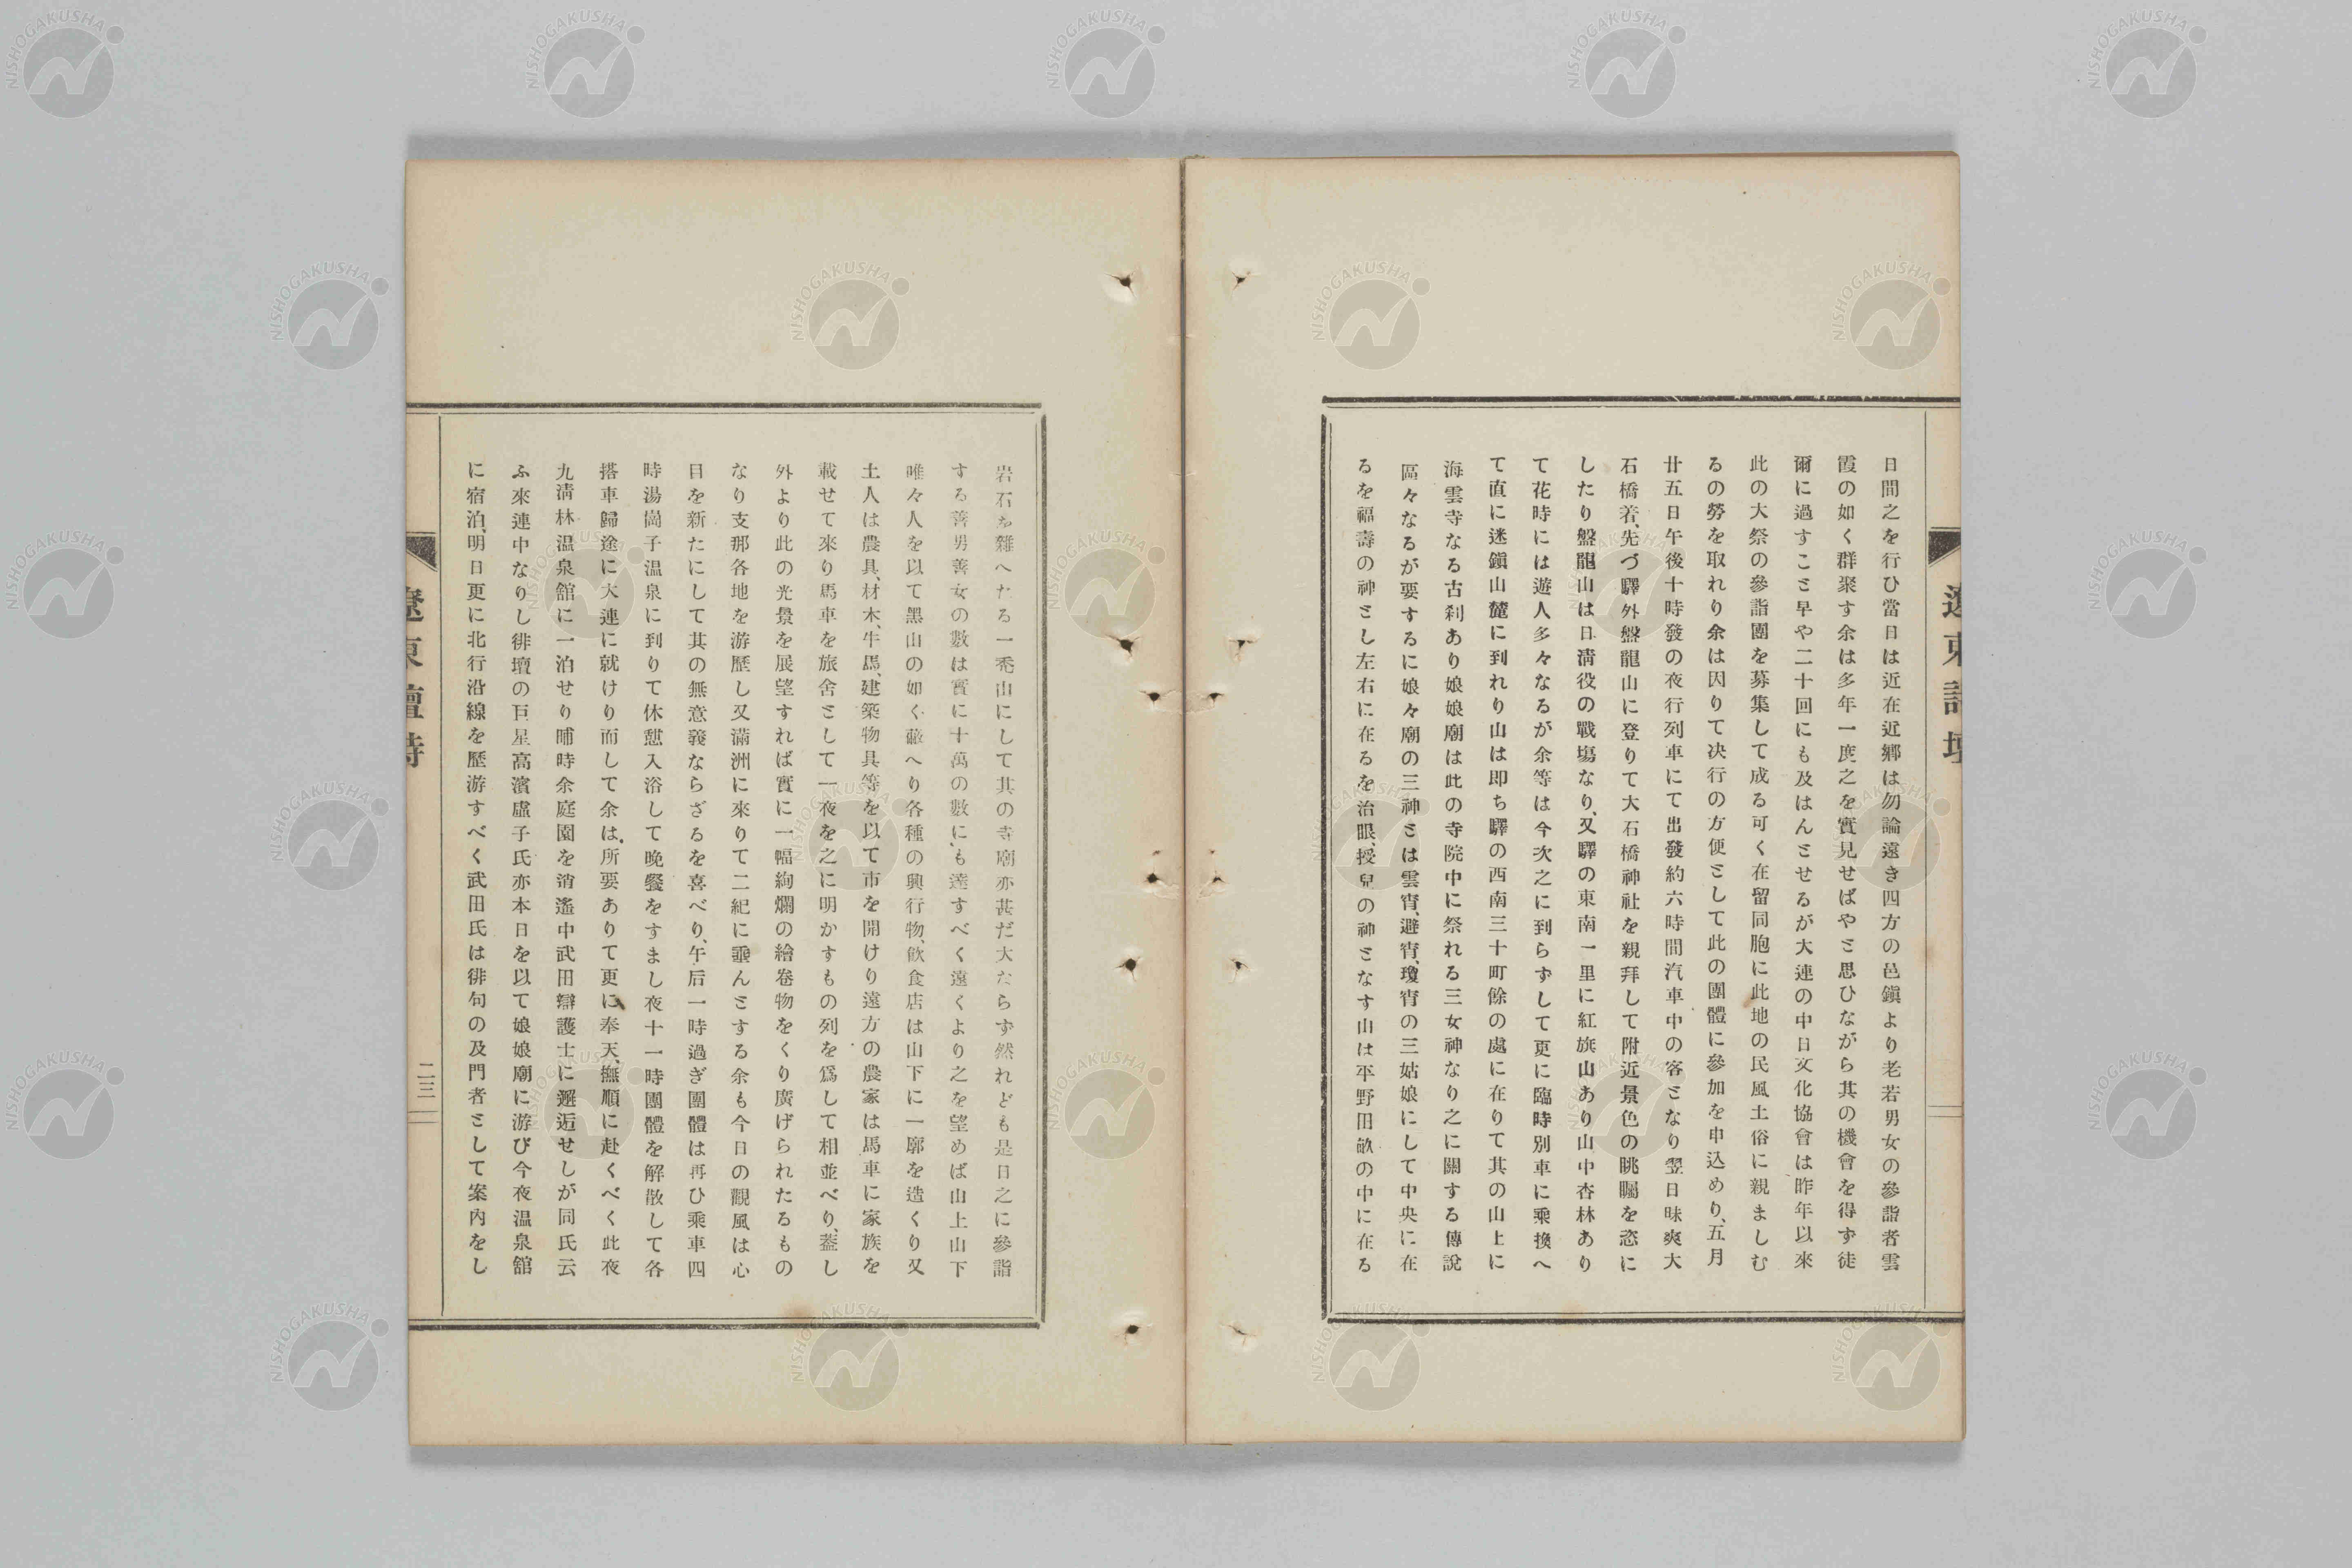 日間之を行ひ當日は近在近鄕は勿論遠き四方の邑鎭より老若男女の參詣者雲
霞の如く群聚す余は多年一度之を實見せばやと思ひながら其の機會を得ず徒
爾に過すこと早や二十回にも及はんとせるが大連の中日文化協會は昨年以來
此の大祭の參詣團を募集して成る可く在留同胞に此地の民風土俗に親ましむ
るの勞を取れり余は因りて決行の方便として此の團體に參加を申込めり、五月
廿五日午後十時發の夜行列車にて出發約六時間汽車中の客となり翌日昧爽大
石橋着、先づ驛外盤龍山に登りて大石橋神社を親拜して附近景色の眺矚を恣に
したり盤龍山は日淸役の戰塲なり、又驛の東南一里に紅旗山あり山中杏林あり
て花時には遊人多々なるが余等は今次之に到らずして更に臨時別車に乘換へ
て直に迷鎭山麓に到れり山は即ち驛の西南三十町餘の處に在りて其の山上に
海雲寺なる古刹あり娘娘廟は此の寺院中に祭れる三女神なり之に關する傳說
區々なるが要するに娘々廟の三神とは雲霄、避霄、瓊霄の三姑娘にして中央に在
るを福壽の神とし左右に在るを治眼、授兒の神となす山は平野田畝の中に在る
遼東詩壇
岩石を雜へたる一禿山にして其の寺廟亦甚だ大ならず然れども是日之に參詣
する善男善女の數は實に十萬の數にも達すべく遠くより之を望めば山上山下
唯々人を以て黑山の如く蔽へり各種の興行物、飮食店は山下に一廓を造くり又
土人は農具、材木、牛馬、建築物具等を以て市を開けり遠方の農家は馬車に家族を
載せて來り馬車を旅舍として一夜を之に明かすもの列を爲して相並べり、蓋し
外より此の光景を展望すれば實に一幅絢爛の繪卷物をくり廣げられたるもの
なり支那各地を游歷し又滿洲に來りて二紀に垂んとする余も今日の觀風は心
目を新たにして其の無意義ならざるを喜べり、午后一時過ぎ團體は再ひ乘車四
時湯崗子温泉に到りて休憩入浴して晩餐をすまし夜十一時團體を解散して各
搭車歸途に大連に就けり而して余は所要ありて更に奉天、撫順に赴くべく此夜
九淸林温泉館に一泊せり晡時余庭園を逍遙中武田辯護士に邂逅せしが同氏云
ふ來連中なりし徘壇の巨星高濱虛子氏亦本日を以て娘娘廟に游び今夜温泉館
に宿泊、明日更に北行沿線を歷游すべく武田氏は徘句の及門者として案內をし
二三